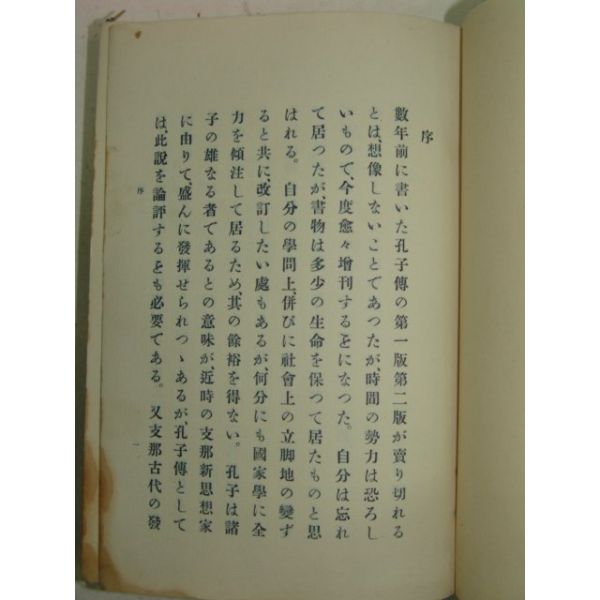 序
數年前に書いた孔子傳の第一版第二版が賣り切れる
とは、想像しないことであつたが、時間の勢力は恐ろし
いもので、今度愈々增刊するをになつた。自分は忘れ
て居つたが、書物は多少の生命を保つて居たものと思
はれる。自分の學問上、併びに社會上の立脚地の變ず
ると共に、改訂したい處もあるが、何分にも國家學に全
力を傾注して居るため、其の餘裕を得ない。孔子は諸
子の雄なる者であるとの意味が、近時の支那新思想家
に由りて、盛んに發揮せられつゝあるが、孔子傳として
は、此說を論評するをも必要である。又支那古代の發
序
一